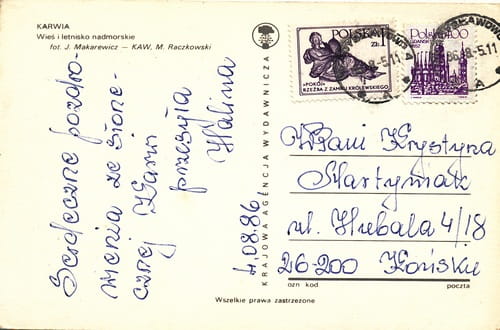 KARWIA
Wieś i letnisko nadmorskie
fot. J. Makarewicz — KAW, M. Raczkowski
Serdeczne pozdro-
wienia ze słone-
cznej Karwi
przesyła
Halina
4.08.86
KRAJOWA AGENCJA WYDAWNICZA
POLSKA
1 ZŁ
«POKÓJ»
RZEŹBA Z ZAMKU KRÓLEWSKIEGO
Polska
WPani Krystyna
Martyniak
ul. Hubala 4/18
26-200 Końskie
ozn kod
poczta
Wszelkie prawa zastrzeżone